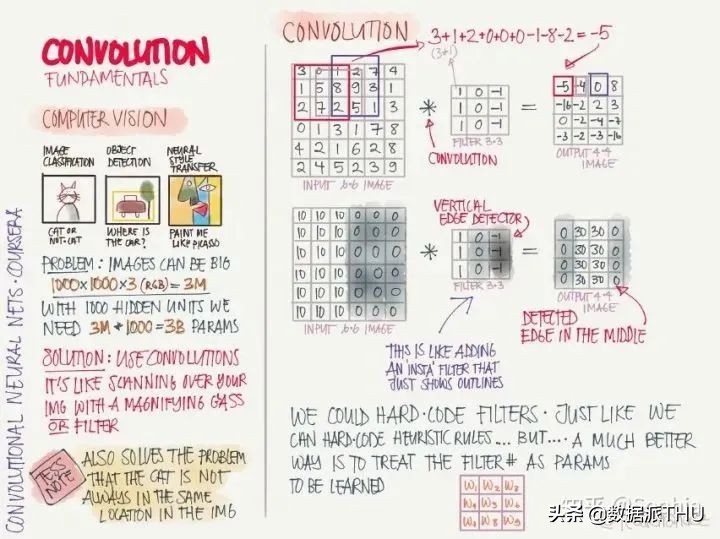 CONVOLUTION
FUNDAMENTALS
COMPUTER VISION
IMAGE CLASSIFICATION
OBJECT DETECTION
NEURAL STYLE TRANSFER
CAT OR NOT-CAT
WHERE IS THE CAR?
PAINT ME LIKE PICASSO
PROBLEM: IMAGES CAN BE BIG
1000×1000×3 (RGB) = 3M
WITH 1000 HIDDEN UNITS WE
NEED 3M * 1000 = 3B PARAMS
SOLUTION: USE CONVOLUTIONS
IT'S LIKE SCANNING OVER YOUR
IMG WITH A MAGNIFYING GASS
OR FILTER
TESS NOTE
ALSO SOLVES THE PROBLEM
THAT THE CAT IS NOT
ALWAYS IN THE SAME
LOCATION IN THE IMG
CONVOLUTIONAL NEURAL NETS · COURSERA
CONVOLUTION
3+1+2+0+0+0-1-8-2=-5
(3*1)
3 0 1 2 7 4
1 5 8 9 3 1
2 7 2 5 1 3
0 1 3 1 7 8
4 2 1 6 2 8
2 4 5 2 3 9
INPUT 6·6 IMAGE
*
CONVOLUTION
1 0 -1
1 0 -1
1 0 -1
FILTER 3×3
=
-5 -4 0 8
-16 -2 2 3
0 -2 -4 -7
-3 -2 -3 -16
OUTPUT 4·4
IMAGE
10 10 10 0 0 0
10 10 10 0 0 0
10 10 10 0 0 0
10 10 10 0 0 0
10 10 10 0 0 0
10 10 10 0 0 0
INPUT 6·6 IMAGE
*
VERTICAL
EDGE DETECTOR
1 0 -1
1 0 -1
1 0 -1
FILTER 3×3
=
0 30 30 0
0 30 30 0
0 30 30 0
0 30 30 0
OUTPUT 4·4
IMAGE
DETECTED
EDGE IN THE MIDDLE
THIS IS LIKE ADDING
AN 'INSTA' FILTER THAT
JUST SHOWS OUTLINES
WE COULD HARD·CODE FILTERS · JUST LIKE WE
CAN HARD·CODE HEURISTIC RULES... BUT.... A MUCH BETTER
WAY IS TO TREAT THE FILTER # AS PARAMS
TO BE LEARNED
W1 W2 W3
W4 W5 W6
W7 W8 W9
头条 @数据派THU